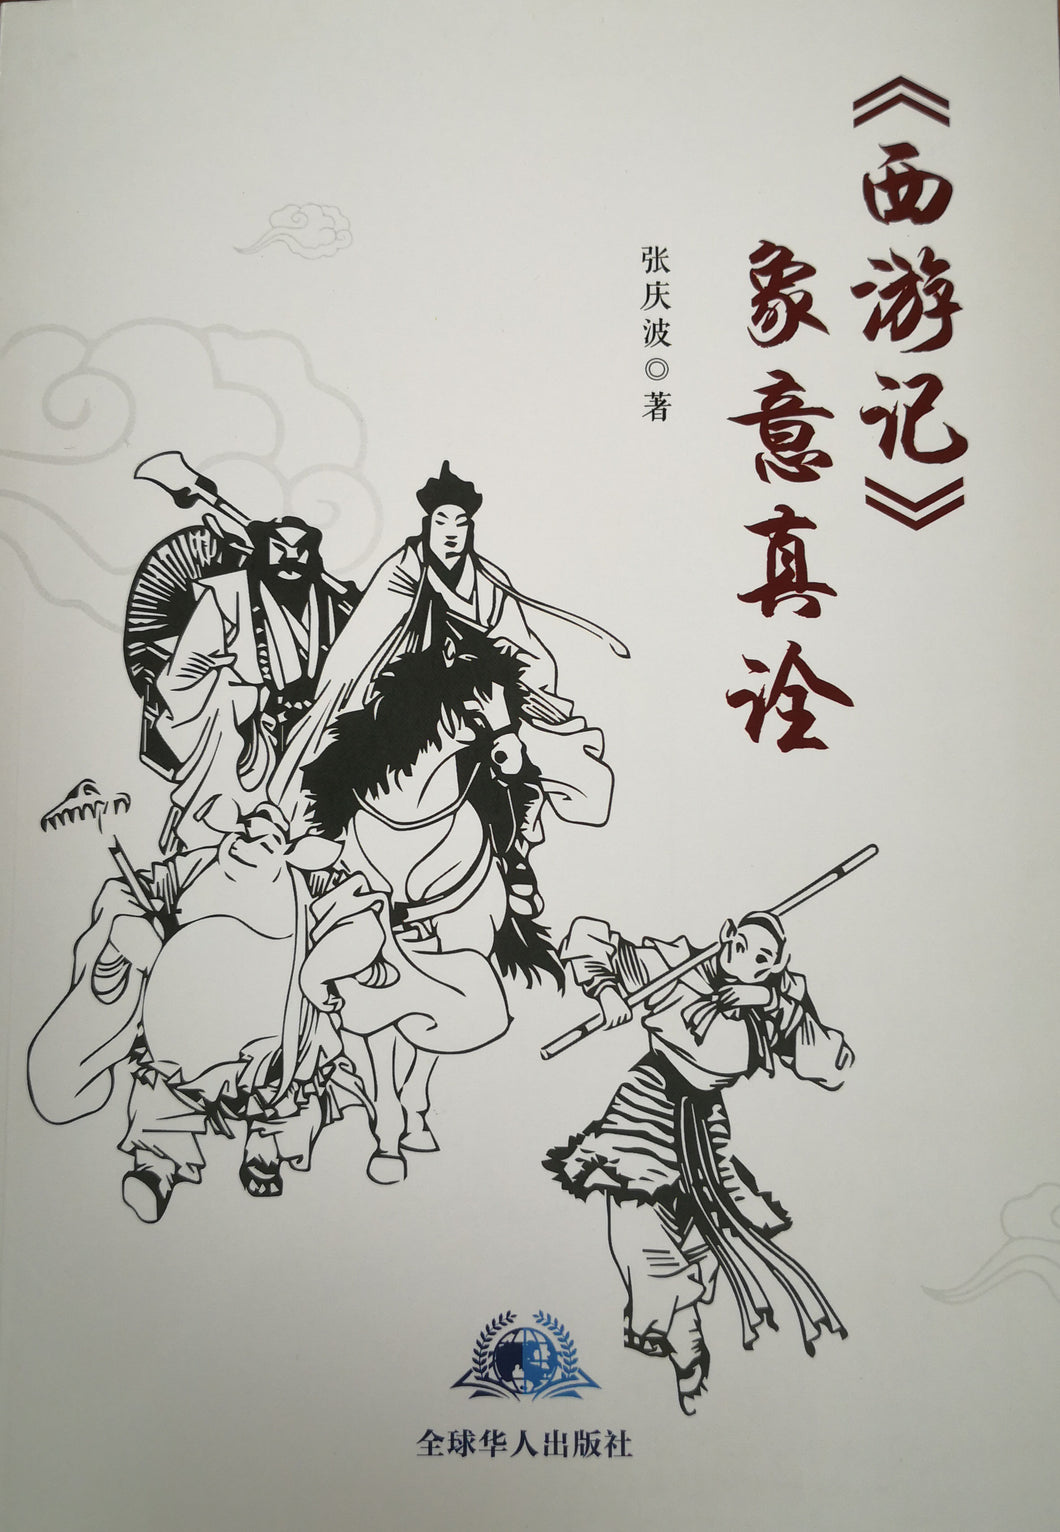 《西游记》
象意真诠
张庆波◎著
全球华人出版社